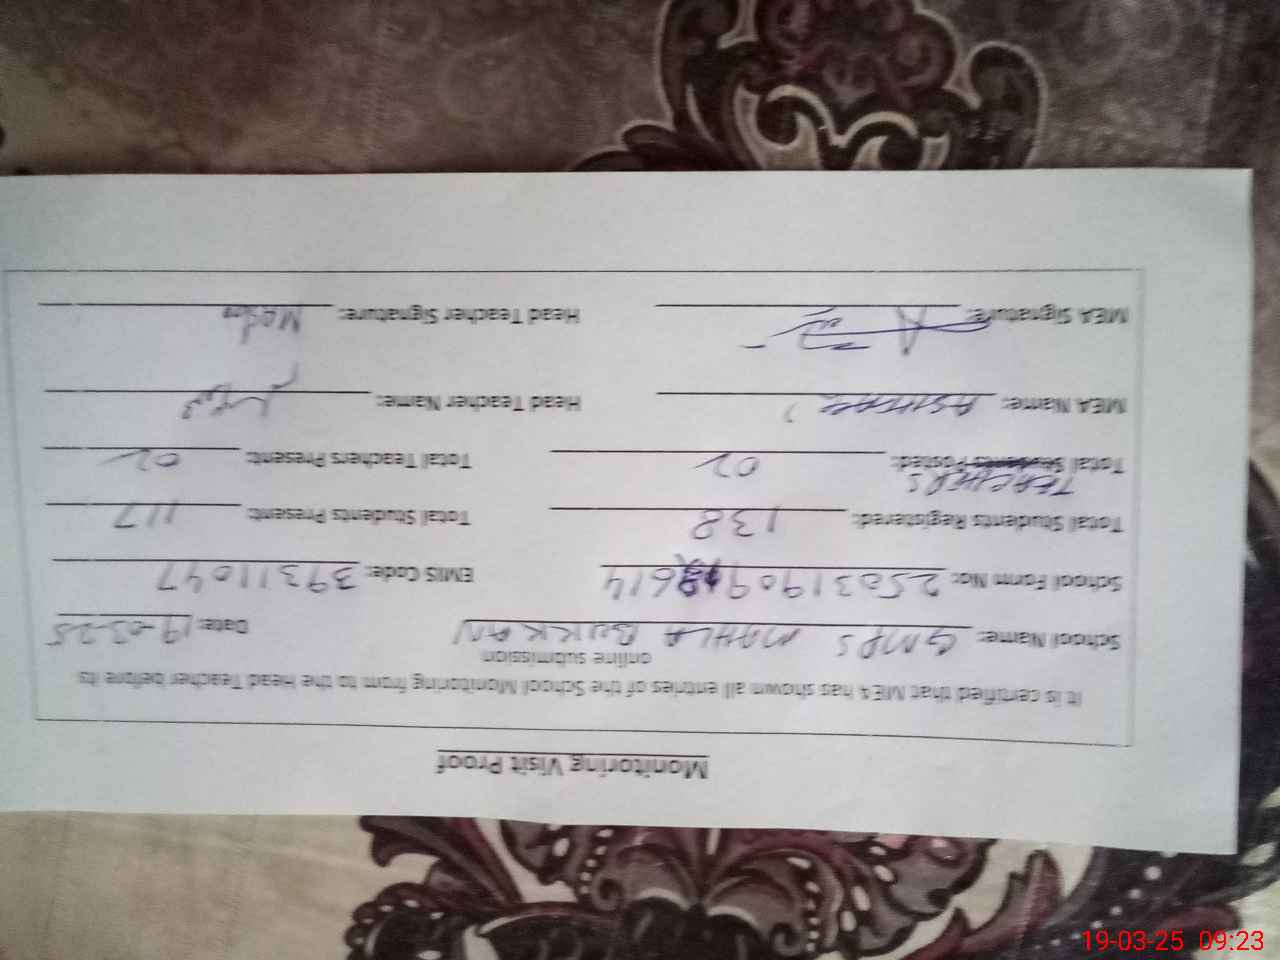 Monitoring Visit Proof
It is certified that MEA has shown all entries of the School Monitoring from to the Head Teacher before its
online submission
School Name: GMPS MAHLA BUKKAN Date: 19-03-25
School Form No: 614 EMIS Code: 39311047
Total Students Registered: 138 Total Students Present: 117
TEACHERS
Total Students Posted: 02 Total Teachers Present: 02
MEA Name: Head Teacher Name:
MEA Signature: Head Teacher Signature:
19-03-25 09:23